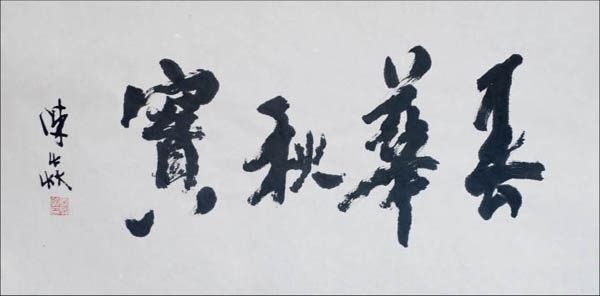 春華秋實
陳